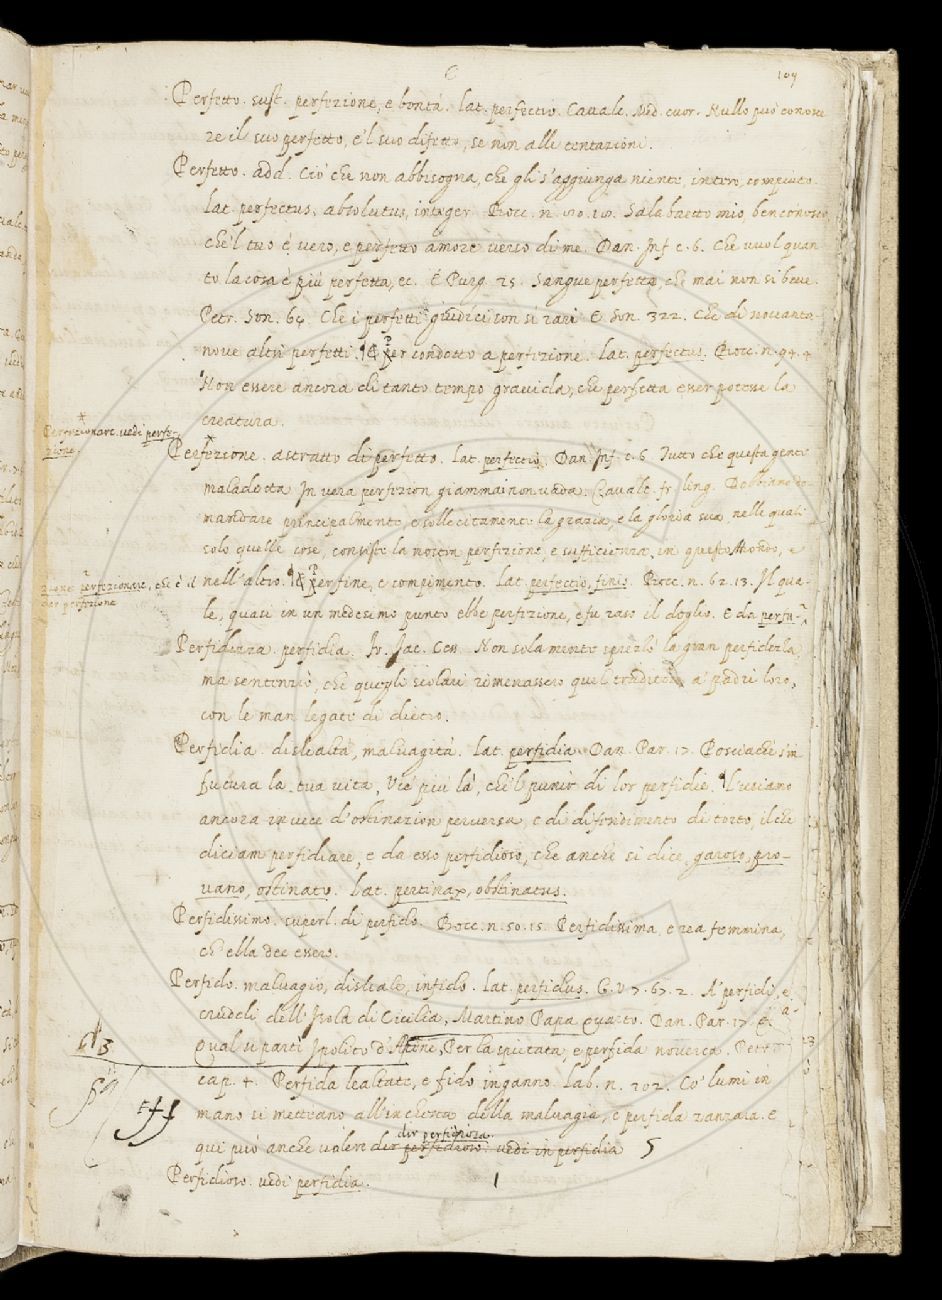 107
Perfetto. sust. perfezione, e bontà. lat. perfectio. Cavalc. Med. cuor. Nullo può conosce
re il suo perfetto, e 'l suo difetto, se non alle tentazioni.
Perfetto. add. Ciò che non abbisogna, che gli s'aggiunga niente, intero, compiuto.
lat. perfectus, absolutus, integer. Bocc. n. 80. Salabaetto mio, ben conosco,
che 'l tuo è vero, e perfetto amore verso di me. Dan. Inf. c. 6. Che vuol quan
to la cosa è più perfetta, ec. E Purg. 25. Sangue perfetto, che mai non si beve.
Petr. Son. 64. Che i perfetti giudici son si rari E Son. 322. Che di novanta-
nove altri perfetti. per condotto a perfezione. lat. perfectus. Bocc. n. 94. 4
Non essere ancora di tanto tempo gravida, che perfetta esser potesse la
creatura.
Perfezionare. vedi perfe-
zione.
Perfezione. astratto di perfetto. lat. perfectio. Dan. Inf. c. 6. Tutto che questa gente
maladetta In vera perfezion giammai non vada. Cavalc. fr. ling. Dobbiamo do-
mandare principalmente, e sollecitamente la grazia, e la gloria sua nelle quali
solo quelle cose, consiste la nostra perfezione, e sufficienza, in questo Mondo, e
nell'altro. per fine, e compimento. lat. perfectio, finis. Bocc. n. 62. 13. Il qua-
le, quasi in un medesimo punto ebbe perfezione, e fu raso il doglio. E da perfe-
zione perfezionare, che è il
dar perfezione
Perfidezza. perfidia. Fr. Jac. Cess. Non solamente sprezzò la gran perfidezza,
ma sentenziò, che quegli scolari rimenassero quel traditore a' padri loro,
con le man legate di dietro.
Perfidia. dislealtà, malvagità. lat. perfidia. Dan. Par. 17. Posciachè s'in
futura la tua vita, Vie più là, che 'l punir di lor perfidie. L'usiamo
ancora in vece d'ostinazion perversa, e di difendimento di torto, il che
diciam perfidiare, e da esso perfidioso, che anche si dice, garoso, pro-
vano, ostinato. lat. pertinax, obstinatus.
Perfidissimo. superl. di perfido. Bocc. n. 50. 15. Perfidissima, e rea femmina,
ch'ella dee essere.
Perfido. malvagio, disleale, infido. lat. perfidus. G. V. 7. 67. 2. A' perfidi, e
crudeli dell'Isola di Cicilia, Martino Papa quarto. Dan. Par. 17.
Qual si partì Ipolito d'Atene, Per la spietata, e perfida noverca. Petr.
cap. 4. Perfida lealtate, e fido inganno. Lab. n. 202. Co' lumi in
mano si mettrano all'inchesta della malvagia, e perfida zanzara. e
qui può anche valere dir perfidioso. vedi in perfidia
Perfidioso. vedi perfidia.